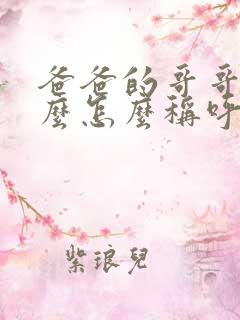 爸爸的哥哥
麼怎麼稱呼
紫琅兒